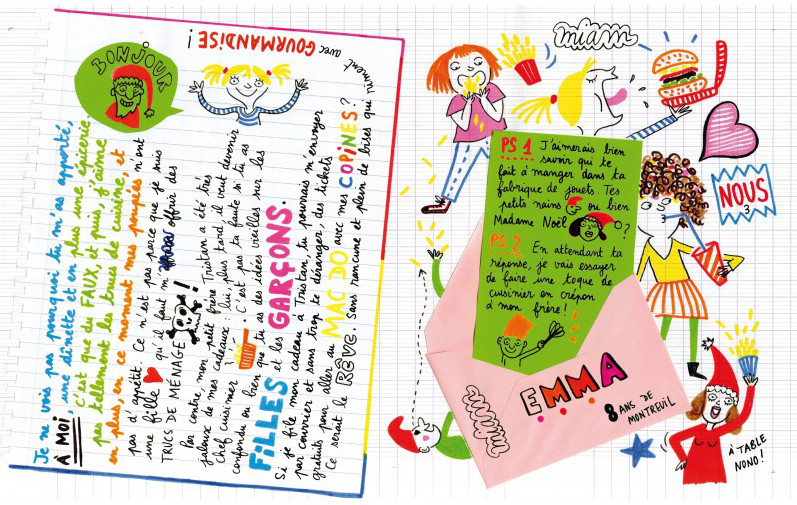 BONJOUR
Je ne vois pas pourquoi tu m'as apporté,
À MOI, une dînette et en plus une épicerie.
c'est que du FAUX, et puis, j'aime
pas tellement les trucs de cuisine, et
en plus, en ce moment mes poupées n'ont
pas d'appétit. Ce n'est pas parce que je suis
une fille qu'il faut m' offrir des
TRUCS DE MÉNAGE !
Par contre, mon petit frère Tristan a été très
jaloux de mes cadeaux lui, plus tard il veut devenir
Chef cuisinier ! C'est pas ta faute si tu as
confondu ou bien que tu as des idées vieilles sur les
FILLES et les GARÇONS.
Si je file mon cadeau à Tristan, tu pourrais m'envoyer
par courrier et sans trop te déranger, des tickets
gratuits pour aller au MAC DO avec mes COPINES ?
Ce serait le RÊVE. Sans rancune et plein de bises qui riment
avec GOURMANDISE !
miam
PS 1 J'aimerais bien
savoir qui te
fait à manger dans ta
fabrique de jouets. Tes
petits nains ou bien
Madame Noël ?
PS 2 En attendant ta
réponse, je vais essayer
de faire une toque de
cuisinier en crépon
à mon frère !
NOUS
3
EMMA
8 ANS DE
MONTREUIL
À TABLE
NONO !